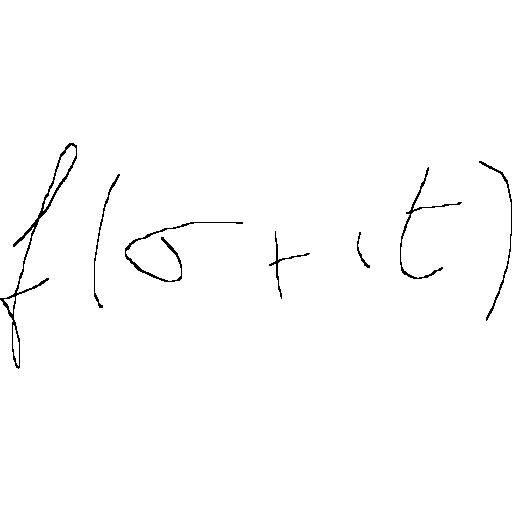 f(σ+it)